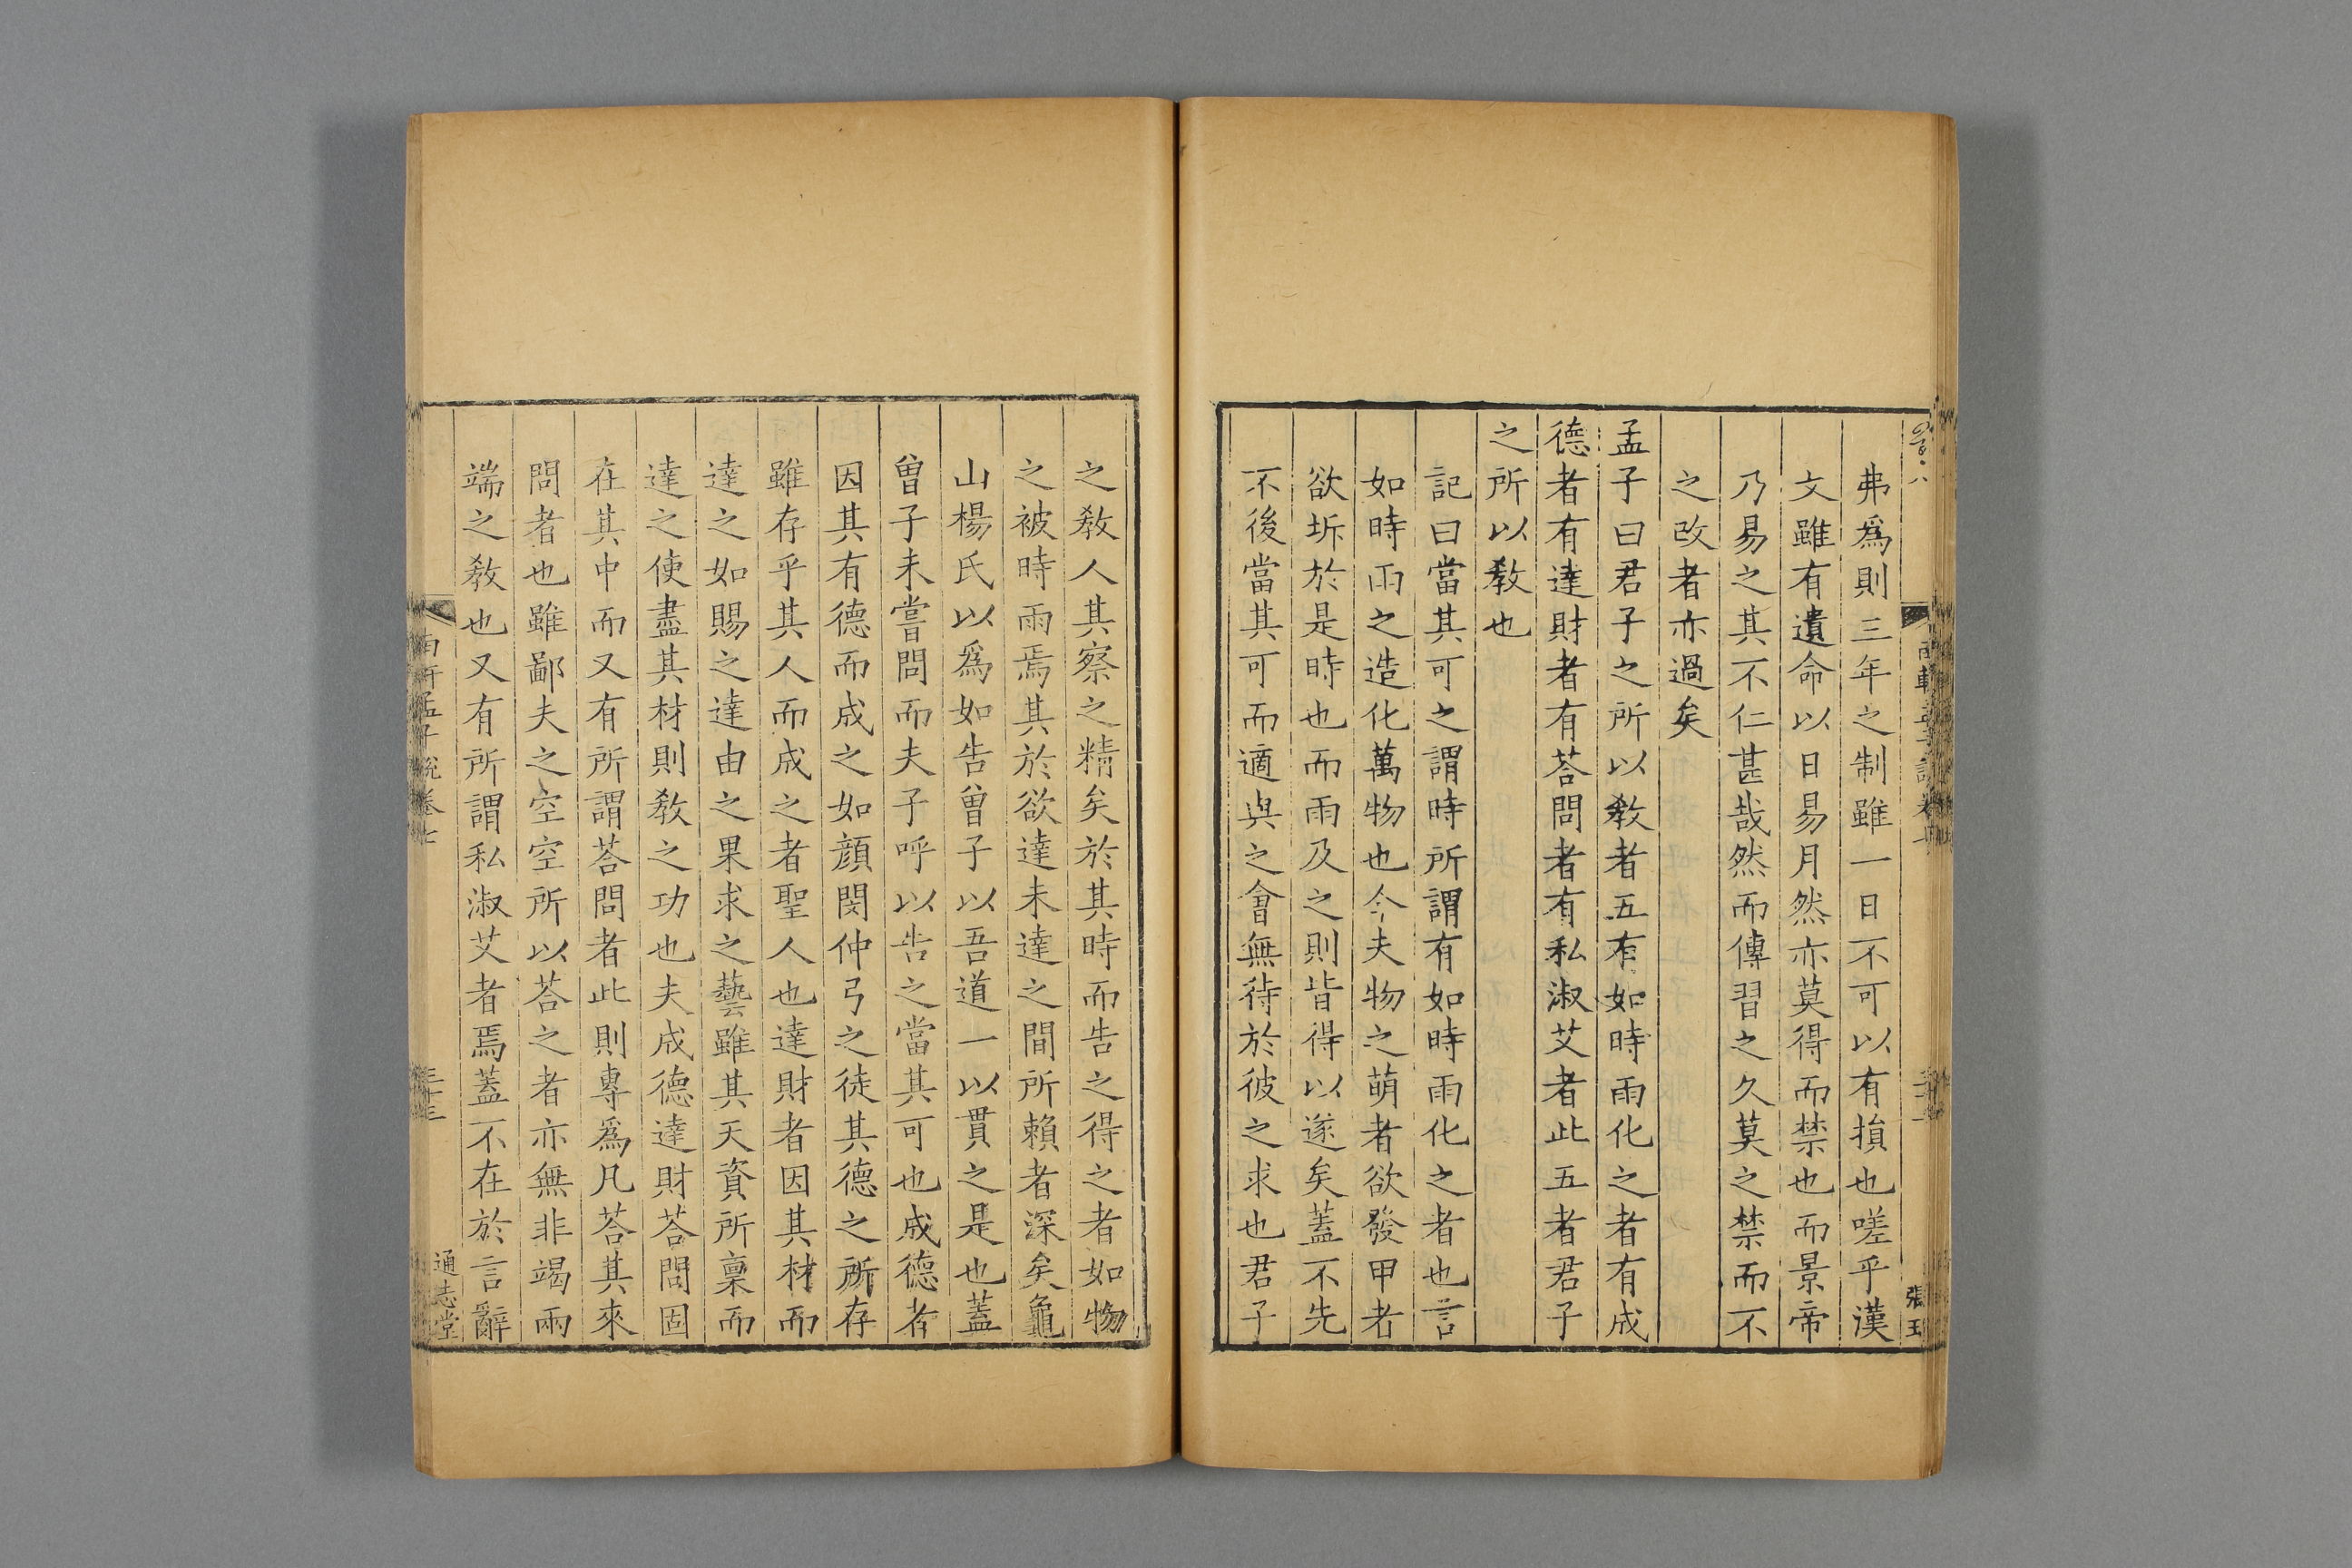 弗爲則三年之制雖一日不可以有損也嗟乎漢
文雖有遺命以日易月然亦莫得而禁也而景帝
乃易之其不仁甚哉然而傳習之久莫之禁而不
之改者亦過矣
孟子曰君子之所以敎者五有如時雨化之者有成
德者有達財者有荅問者有私淑艾者此五者君子
之所以敎也
記曰當其可之謂時所謂有如時雨化之者也言
如時雨之造化萬物也今夫物之萌者欲發甲者
欲坼於是時也而雨及之則皆得以遂矣蓋不先
不後當其可而適與之會無待於彼之求也君子
之敎人其察之精矣於其時而告之得之者如物
之被時雨焉其於欲達未達之間所賴者深矣龜
山楊氏以爲如告曾子以吾道一以貫之是也蓋
曾子未嘗問而夫子呼以告之當其可也成德者
因其有德而成之如顔閔仲弓之徒其德之所存
雖存乎其人而成之者聖人也達財者因其材而
達之如賜之達由之果求之藝雖其天資所稟而
達之使盡其材則敎之功也夫成德達財荅問固
在其中而又有所謂荅問者此則專爲凡荅其來
問者也雖鄙夫之空空所以荅之者亦無非竭兩
端之敎也又有所謂私淑艾者焉蓋不在於言辭
南軒孟子說卷七
三十三
通志堂